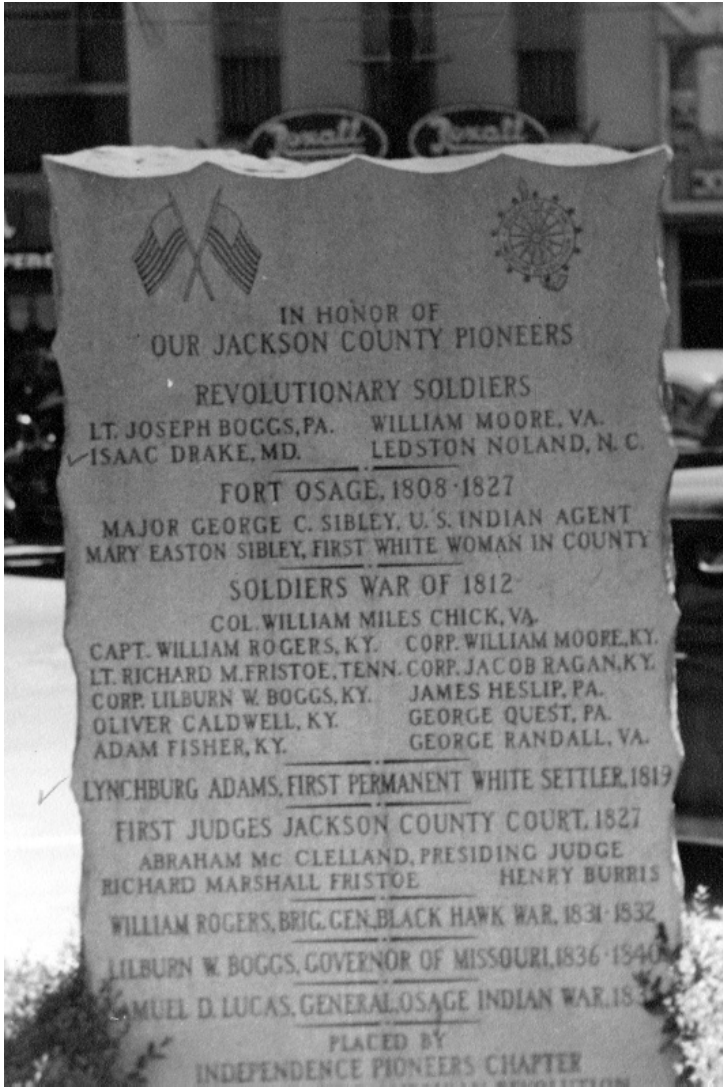 Rexall Rexall
IN HONOR OF
OUR JACKSON COUNTY PIONEERS
REVOLUTIONARY SOLDIERS
LT. JOSEPH BOGGS, PA. WILLIAM MOORE, VA.
ISAAC DRAKE, MD. LEDSTON NOLAND, N. C.
FORT OSAGE, 1808-1827
MAJOR GEORGE C. SIBLEY, U.S. INDIAN AGENT
MARY EASTON SIBLEY, FIRST WHITE WOMAN IN COUNTY
SOLDIERS WAR OF 1812
COL. WILLIAM MILES CHICK, VA.
CAPT. WILLIAM ROGERS, KY. CORP. WILLIAM MOORE, KY.
LT. RICHARD M. FRISTOE, TENN. CORP. JACOB RAGAN, KY.
CORP. LILBURN W. BOGGS, KY. JAMES HESLIP, PA.
OLIVER CALDWELL, KY. GEORGE QUEST, PA.
ADAM FISHER, KY. GEORGE RANDALL, VA.
LYNCHBURG ADAMS, FIRST PERMANENT WHITE SETTLER, 1819
FIRST JUDGES JACKSON COUNTY COURT, 1827
ABRAHAM Mc CLELLAND, PRESIDING JUDGE
RICHARD MARSHALL FRISTOE HENRY BURRIS
WILLIAM ROGERS, BRIG. GEN. BLACK HAWK WAR, 1831-1832
LILBURN W. BOGGS, GOVERNOR OF MISSOURI, 1836-1840
AMUEL D. LUCAS, GENERAL, OSAGE INDIAN WAR, 183
PLACED BY
INDEPENDENCE PIONEERS CHAPTER